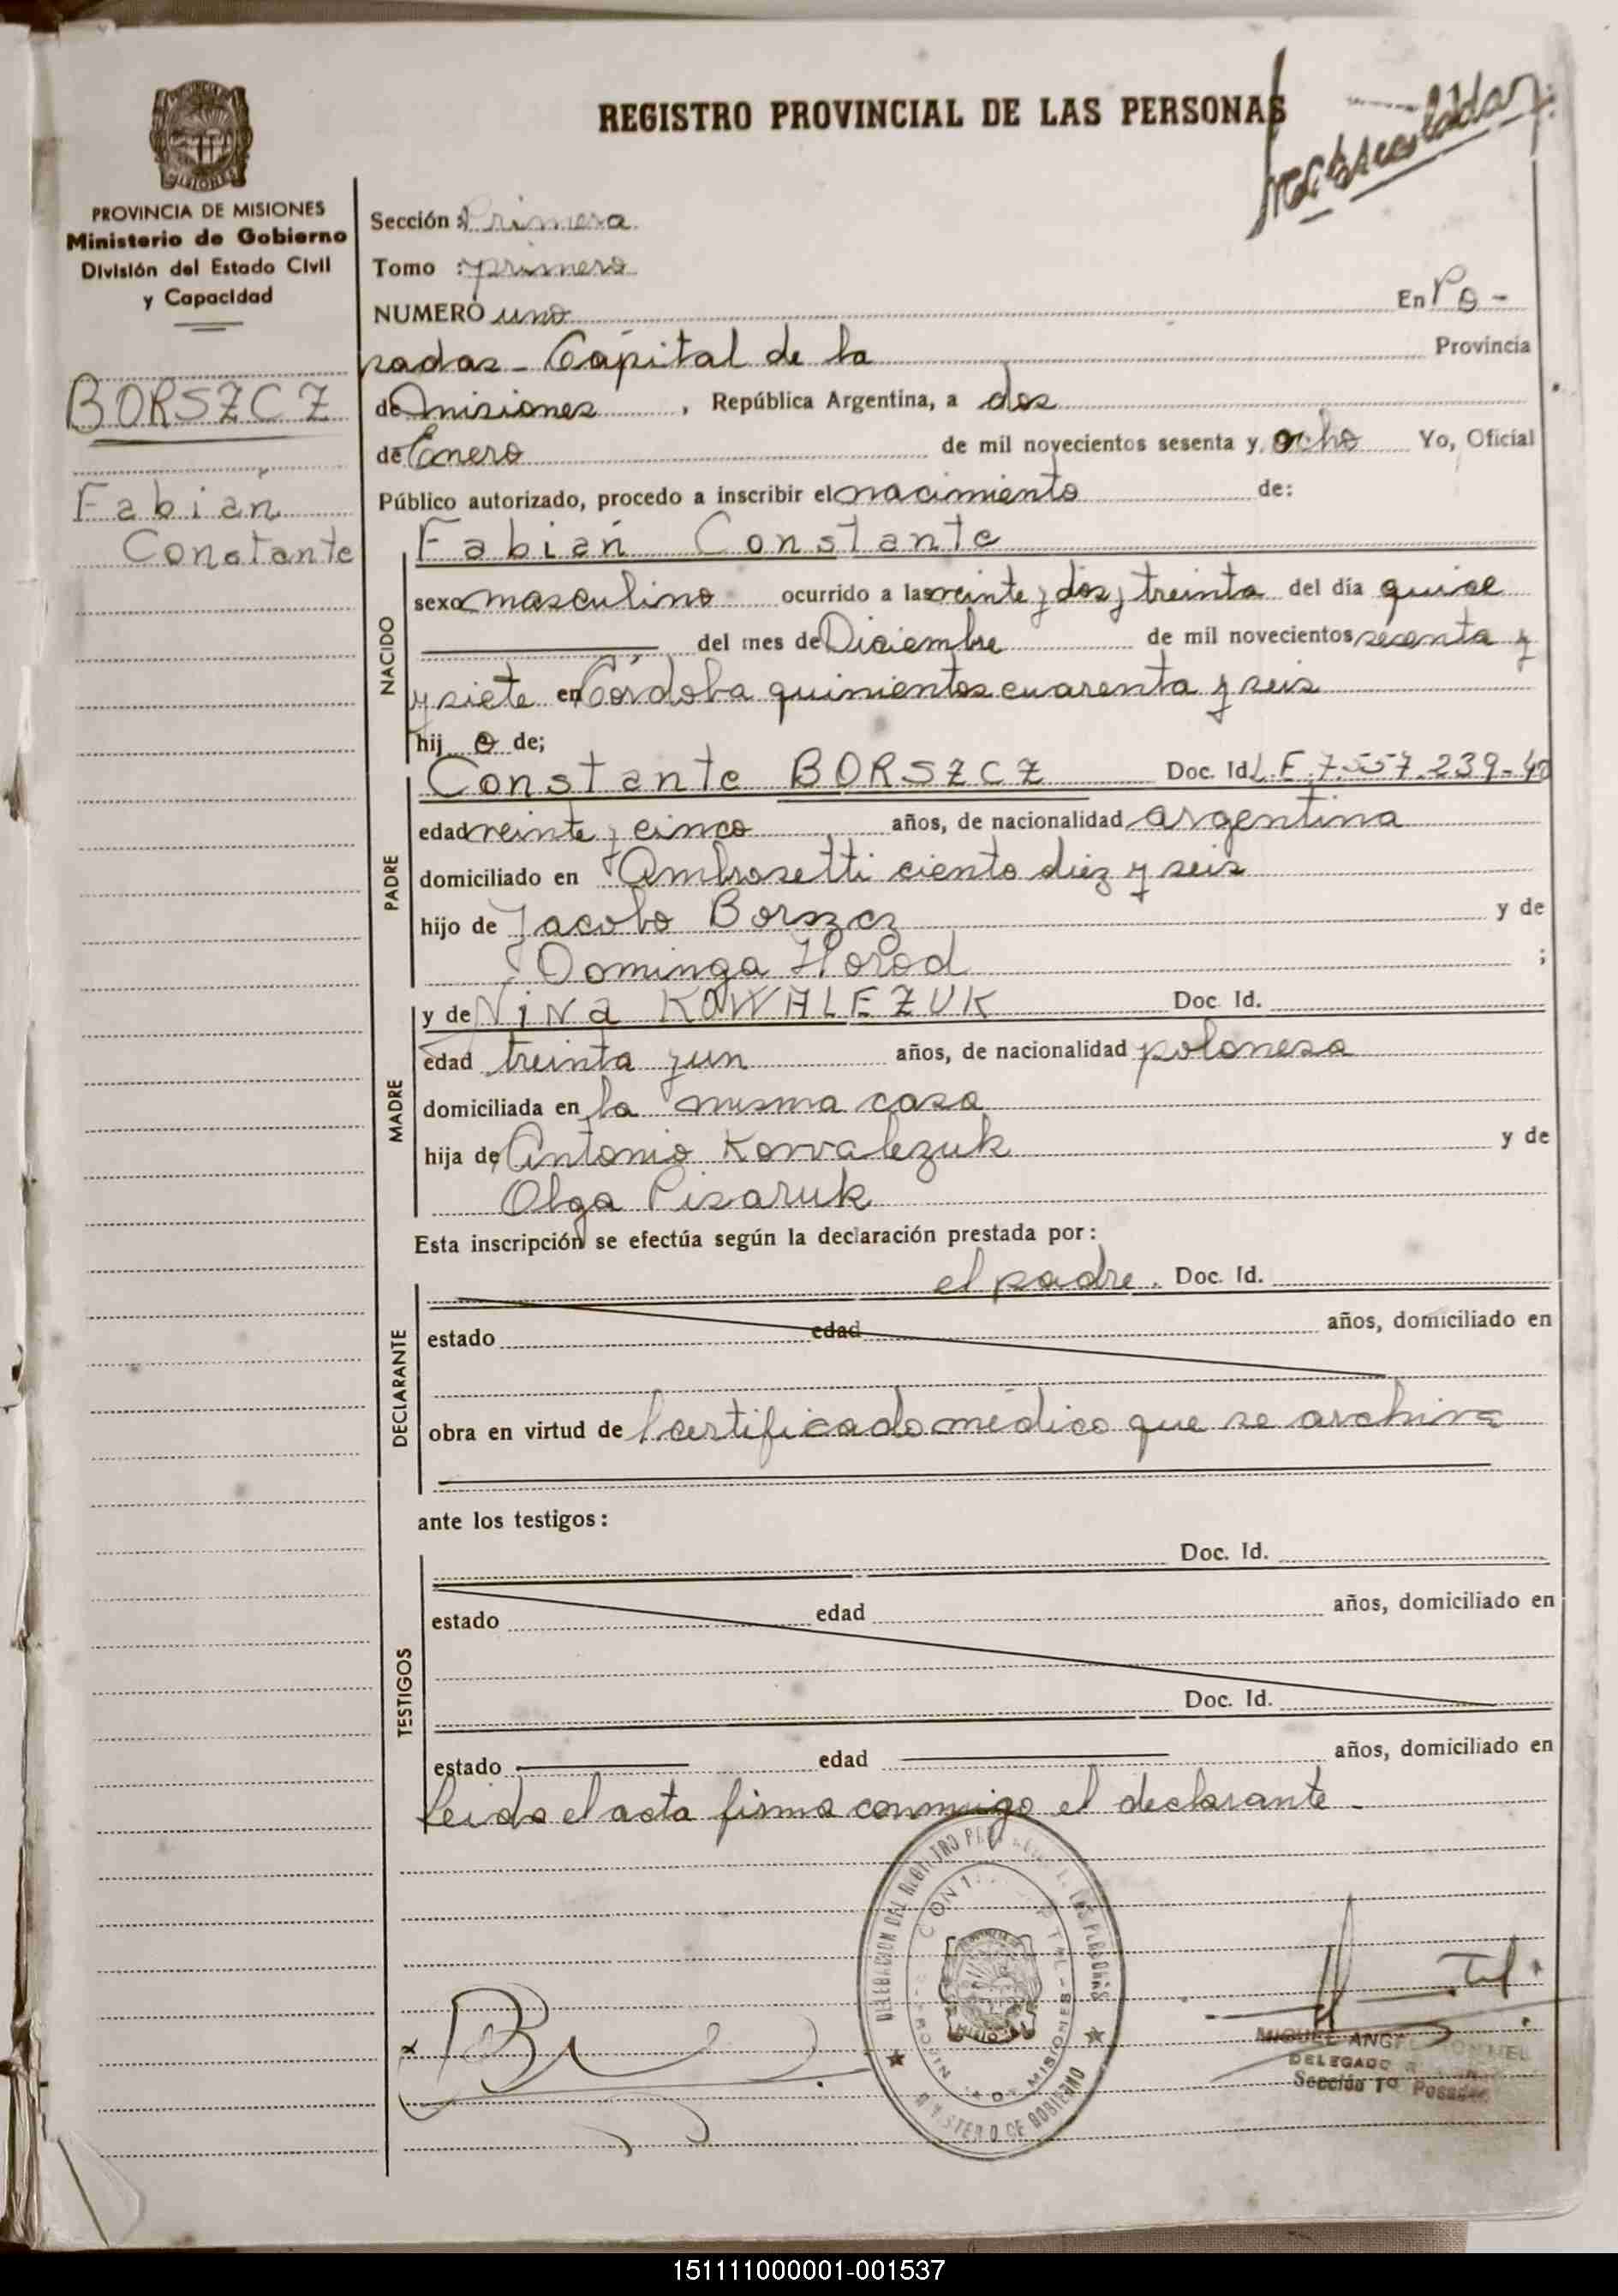 REGISTRO PROVINCIAL DE LAS PERSONAS
PROVINCIA DE MISIONES
Ministerio de Gobierno
División del Estado Civil
y Capacidad
BORSZCZ
Fabián
Constante
Sección : Primera
Tomo : primero
NUMERO uno En Po-
sadas - Capital de la Provincia
de misiones, República Argentina, a dos
de Enero de mil novecientos sesenta y ocho Yo, Oficial
Público autorizado, procedo a inscribir el nacimiento de:
NACIDO
Fabián Constante
sexo masculino ocurrido a las veinte y dos y treinta del día quice
del mes de Diciembre de mil novecientos sesenta y
y siete en Córdoba quinientos cuarenta y seis
hij o de;
PADRE
Constante BORSZCZ Doc. Id. L.E. 7.557.239-40
edad veinte y cinco años, de nacionalidad argentina
domiciliado en Ambrosetti ciento diez y seis
hijo de Jacobo Borszcz y de
Dominga Horod ;
MADRE
y de NiNa KOWALEZUK Doc. Id.
edad treinta y un años, de nacionalidad polonesa
domiciliada en la misma casa
hija de Antonio Kowalezuk y de
Olga Pisaruk
Esta inscripción se efectúa según la declaración prestada por :
DECLARANTE
el padre. Doc. Id.
estado edad años, domiciliado en
obra en virtud de l certificado médico que se archiva
ante los testigos :
TESTIGOS
Doc. Id.
estado edad años, domiciliado en
Doc. Id.
estado edad años, domiciliado en
Leida el acta firma conmigo el declarante -
DIRECCION DEL REGISTRO LAS PERSONAS
MISIONES
DE GOBIERNO
MIGUEL
DELEGADO
Sección 1º Posadas
151111000001-001537